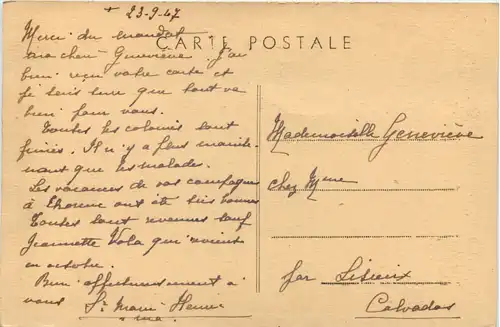 + 23-9-47
CARTE POSTALE
Merci du mandat
ma chère Geneviève J'ai
bien reçu votre carte et
je suis sûre que tout va
bien pour vous.
Toutes les colonies sont
finies. Il n'y a plus mainte-
nant que les malades.
Les vacances de vos compagnes
à ont été très bonnes
Toutes sont revenues sauf
Jeannette Vola qui revient
en octobre.
Bien affectueusement à
vous Sr Marie
Mademoiselle Geneviève
chez Mme
par Lisieux
Calvados